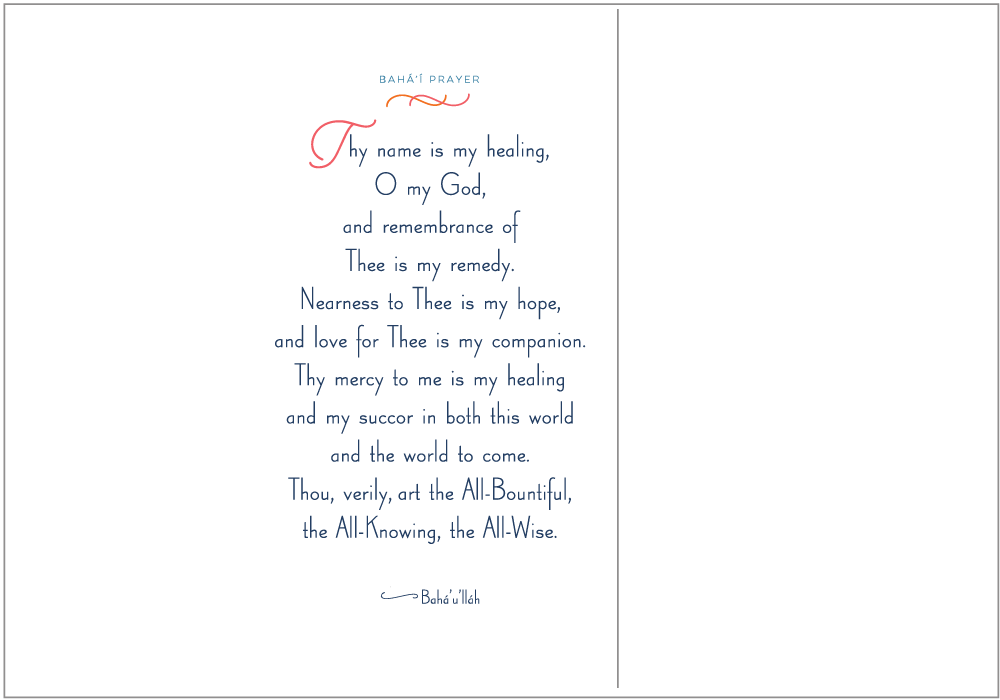 BAHÁ'Í PRAYER
Thy name is my healing,
O my God,
and remembrance of
Thee is my remedy.
Nearness to Thee is my hope,
and love for Thee is my companion.
Thy mercy to me is my healing
and my succor in both this world
and the world to come.
Thou, verily, art the All-Bountiful,
the All-Knowing, the All-Wise.
Bahá'u'lláh